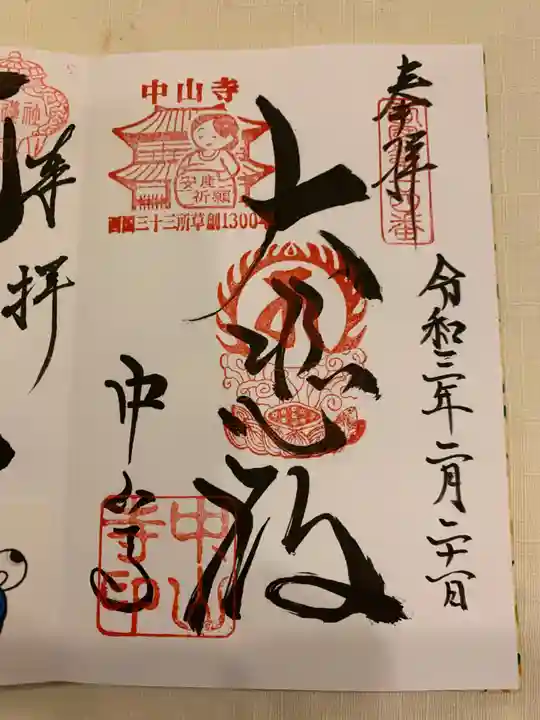 奉拝
令和三年二月二十一日
大悲殿
中山寺
安産
祈願
西国三十三所草創1300年
中山寺
中山寺印
奉拝